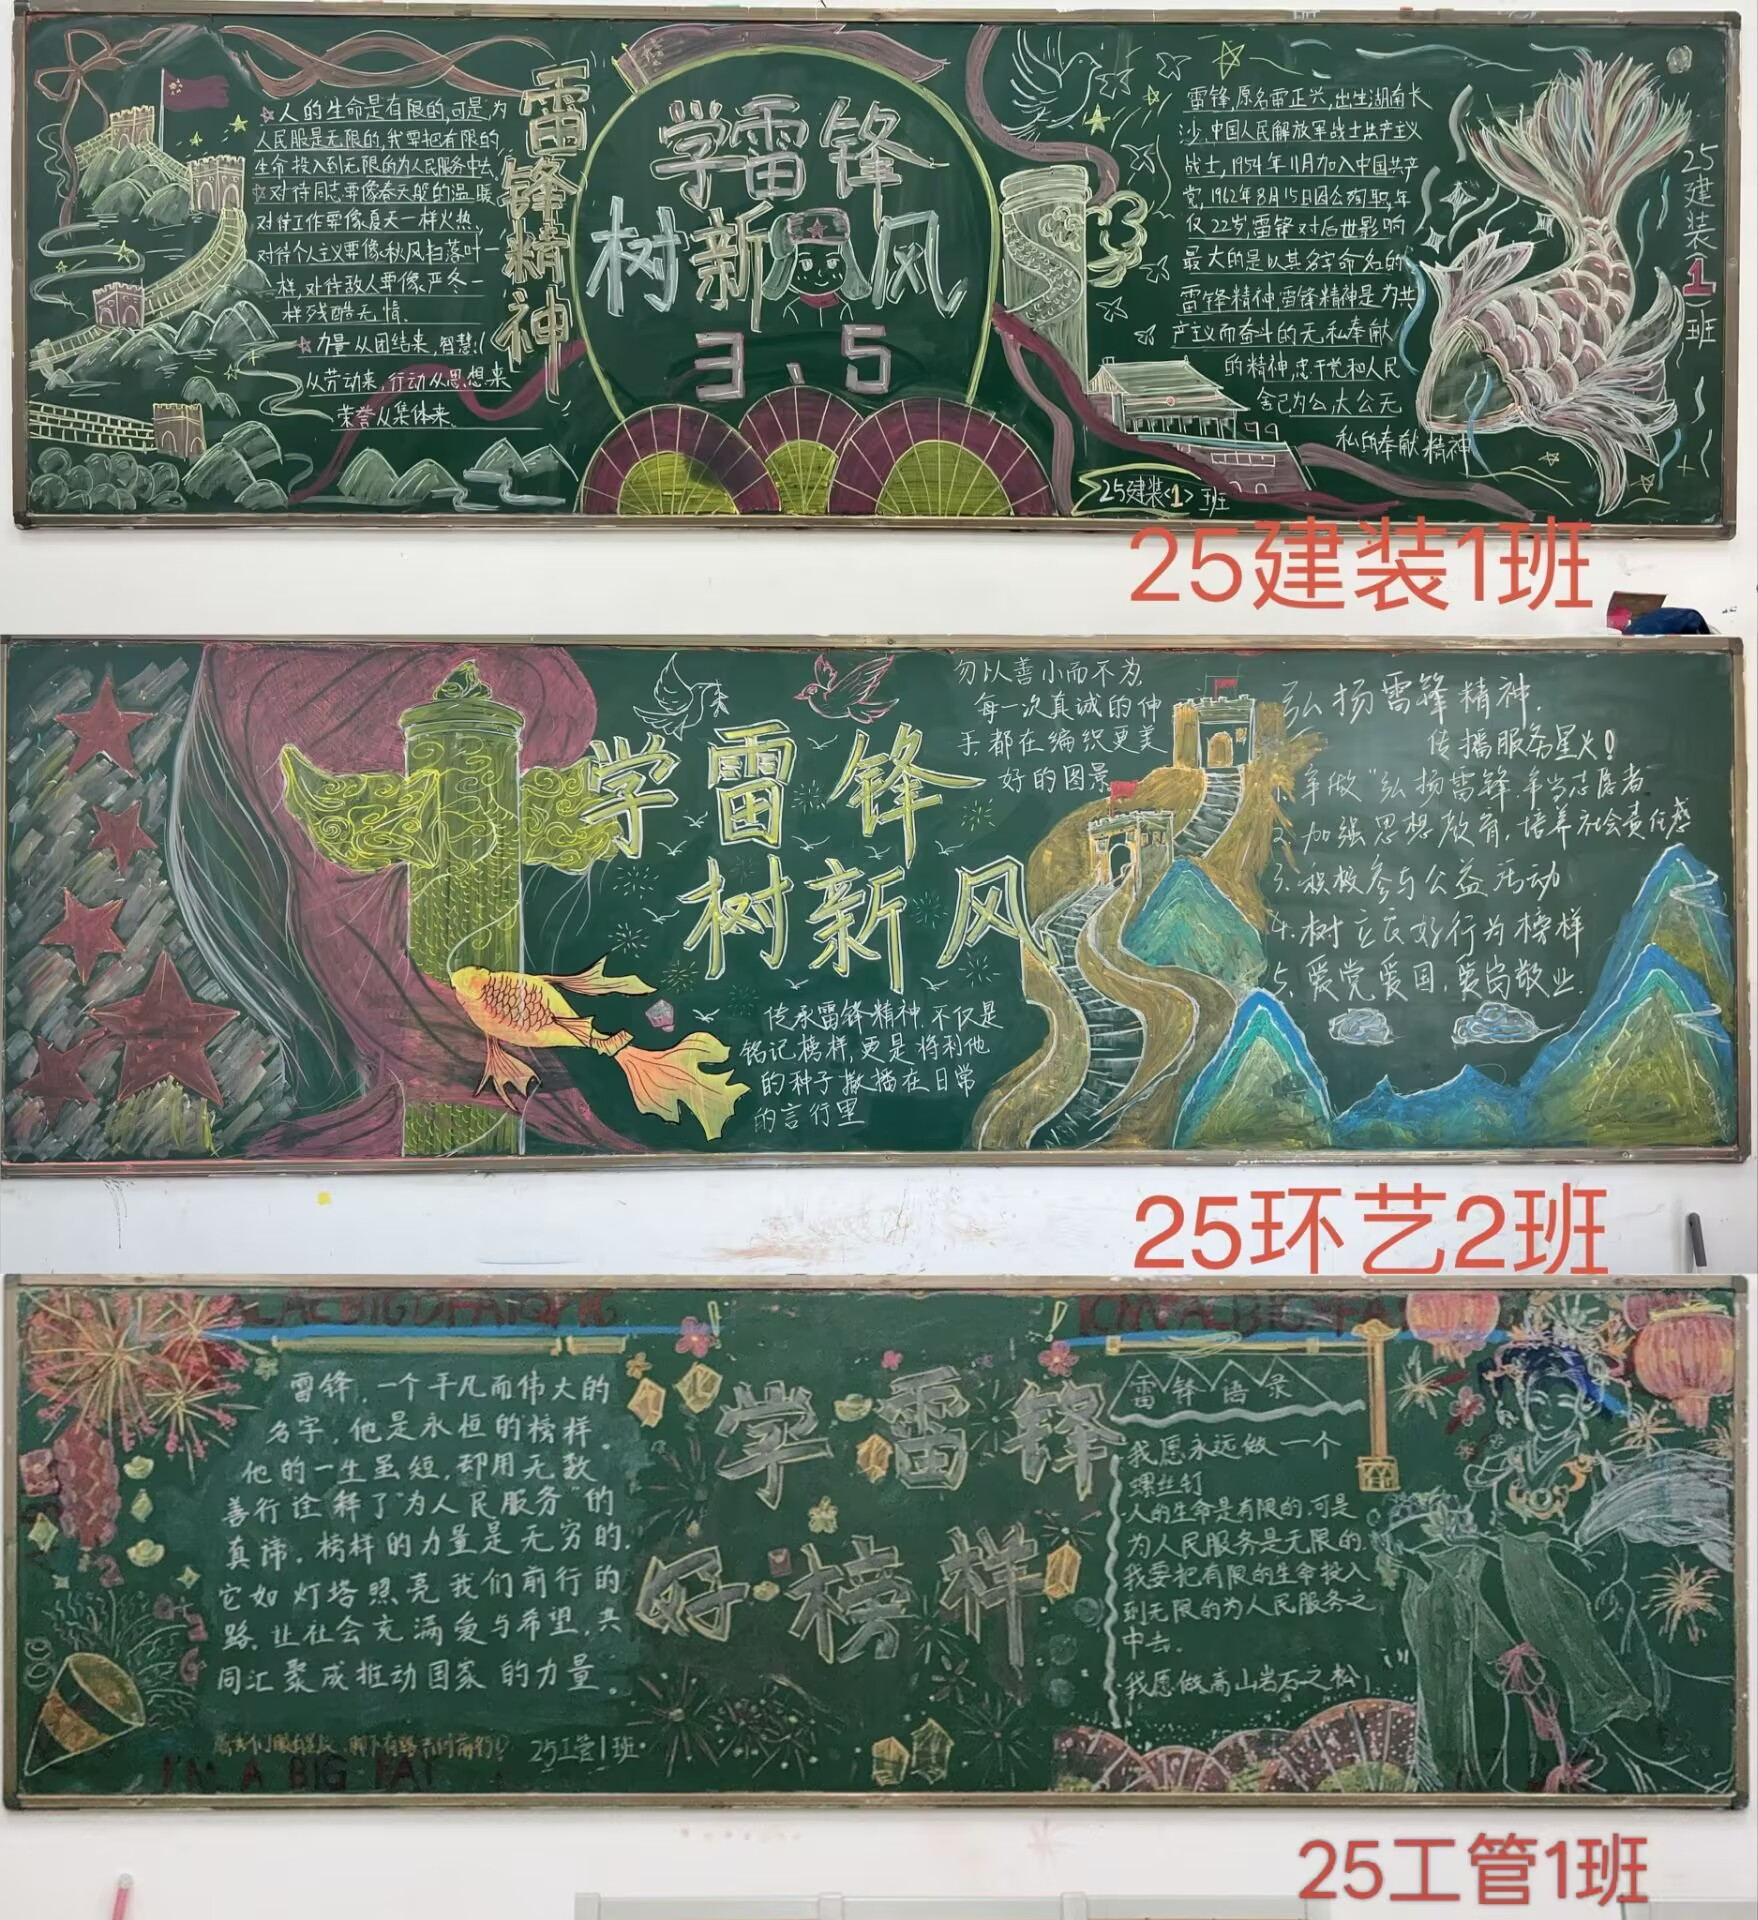 人的生命是有限的,可是,为
人民服是无限的,我要把有限的
生命投入到无限的为人民服务中去。
对待同志要像春天般的温暖
对待工作要像夏天一样火热、
对待个人主义要像秋风扫落叶一
样,对待敌人要像严冬一
样残酷无情.
力量从团结来,智慧
从劳动来,行动从思想来
荣誉从集体来.
雷锋精神
学雷锋
树新风
3.5
雷锋,原名雷正兴,出生湖南长
沙,中国人民解放军战士共产主义
战士,1954年11月加入中国共产
党,1962年8月15日因公殉职,年
仅22岁,雷锋对后世影响
最大的是以其名字命名的
雷锋精神,雷锋精神是为共
产主义而奋斗的无私奉献
的精神,忠于党和人民
舍己为公,大公无
私的奉献精神
25建装<1>班
25建装1班
25建装1班
学雷锋
树新风
勿以善小而不为,
每一次真诚的伸
手,都在编织更美
好的图景
传承雷锋精神,不仅是
铭记榜样,更是将利他
的种子撒播在日常
的言行里
弘扬雷锋精神.
传播服务星火!
1.争做"弘扬雷锋,争当志愿者
2.加强思想教育,培养社会责任感
3.积极参与公益活动
4.树立良好行为榜样
5.爱党爱国,爱岗敬业.
25环艺2班
雷锋,一个平凡而伟大的
名字,他是永恒的榜样。
他的一生虽短,却用无数
善行诠释了"为人民服务"的
真谛。榜样的力量是无穷的,
它如灯塔照亮我们前行的
路,让社会充满爱与希望,共
同汇聚成推动国家的力量。
25工管1班
I'M A BIG FAT
学雷锋
好榜样
雷锋语录
我愿永远做一个
螺丝钉
人的生命是有限的.可是
为人民服务是无限的.
我要把有限的生命投入
到无限的为人民服务之
中去.
我愿做高山岩石之松
25工管1班